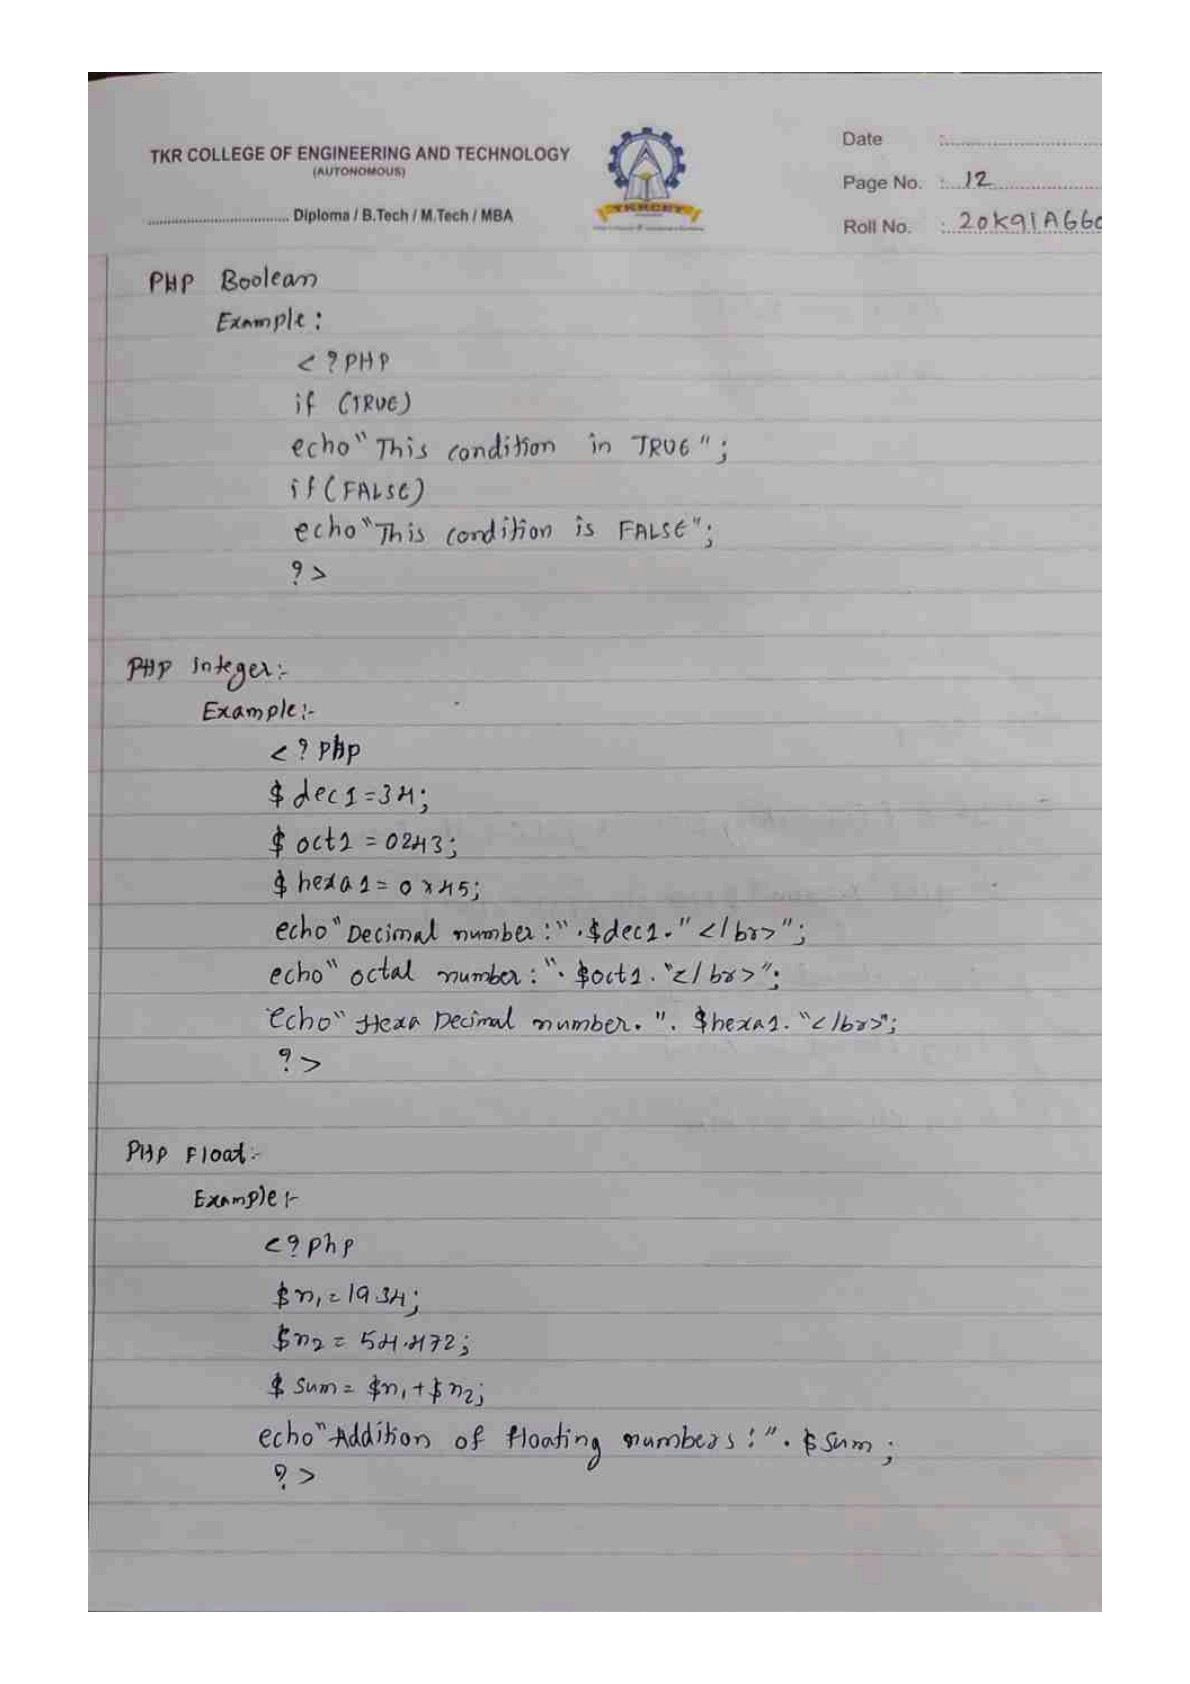 TKR COLLEGE OF ENGINEERING AND TECHNOLOGY
(AUTONOMOUS)
Diploma / B.Tech / M.Tech / MBA
TKRCET
Date :
Page No. : 12
Roll No. : 20K91A660
PHP Boolean
Example:
<?PHP
if (TRUE)
echo"This condition in TRUE";
if(FALSE)
echo"This condition is FALSE";
?>
PHP Integer:-
Example:-
<?php
$dec1=34;
$oct1=0243;
$hexa1=0x45;
echo"Decimal number:".$dec1."</br>";
echo"octal number:".$oct1."</br>";
echo"Hexa Decimal number.".$hexa1."</br>";
?>
PHP Float:-
Example:-
<?php
$n1=19.34;
$n2=54.472;
$sum=$n1+$n2;
echo"Addition of floating numbers:".$sum;
?>